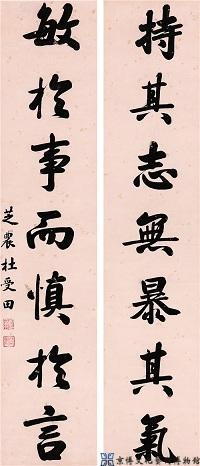 持其志無暴其氣
敏於事而慎於言
芝農杜受田